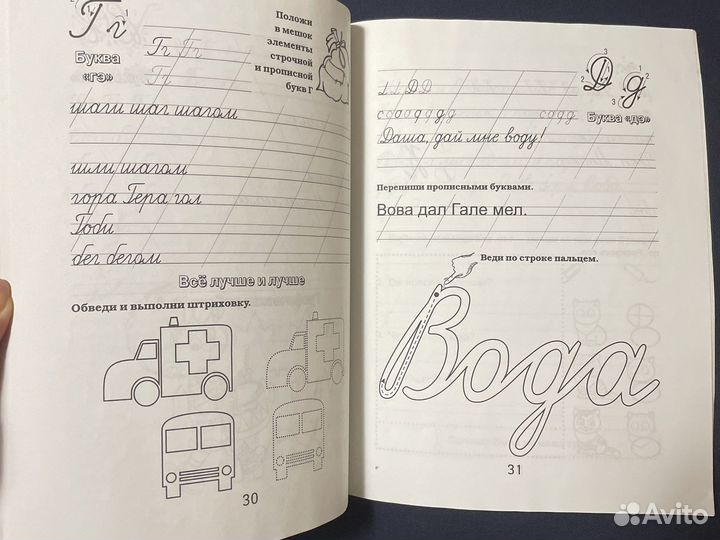 Г г
Буква
«гэ»
Гг Гг
Гг
Положи
в мешок
элементы
строчной
и прописной
букв Г
шаги шаг шагом
шли шагом
гора Гера гол
Гоби
бег бегом
Всё лучше и лучше
Обведи и выполни штриховку.
30
Д д
Буква «дэ»
Даша, дай мне воду!
Перепиши прописными буквами.
Вова дал Гале мел.
Веди по строке пальцем.
Вода
31
Avito